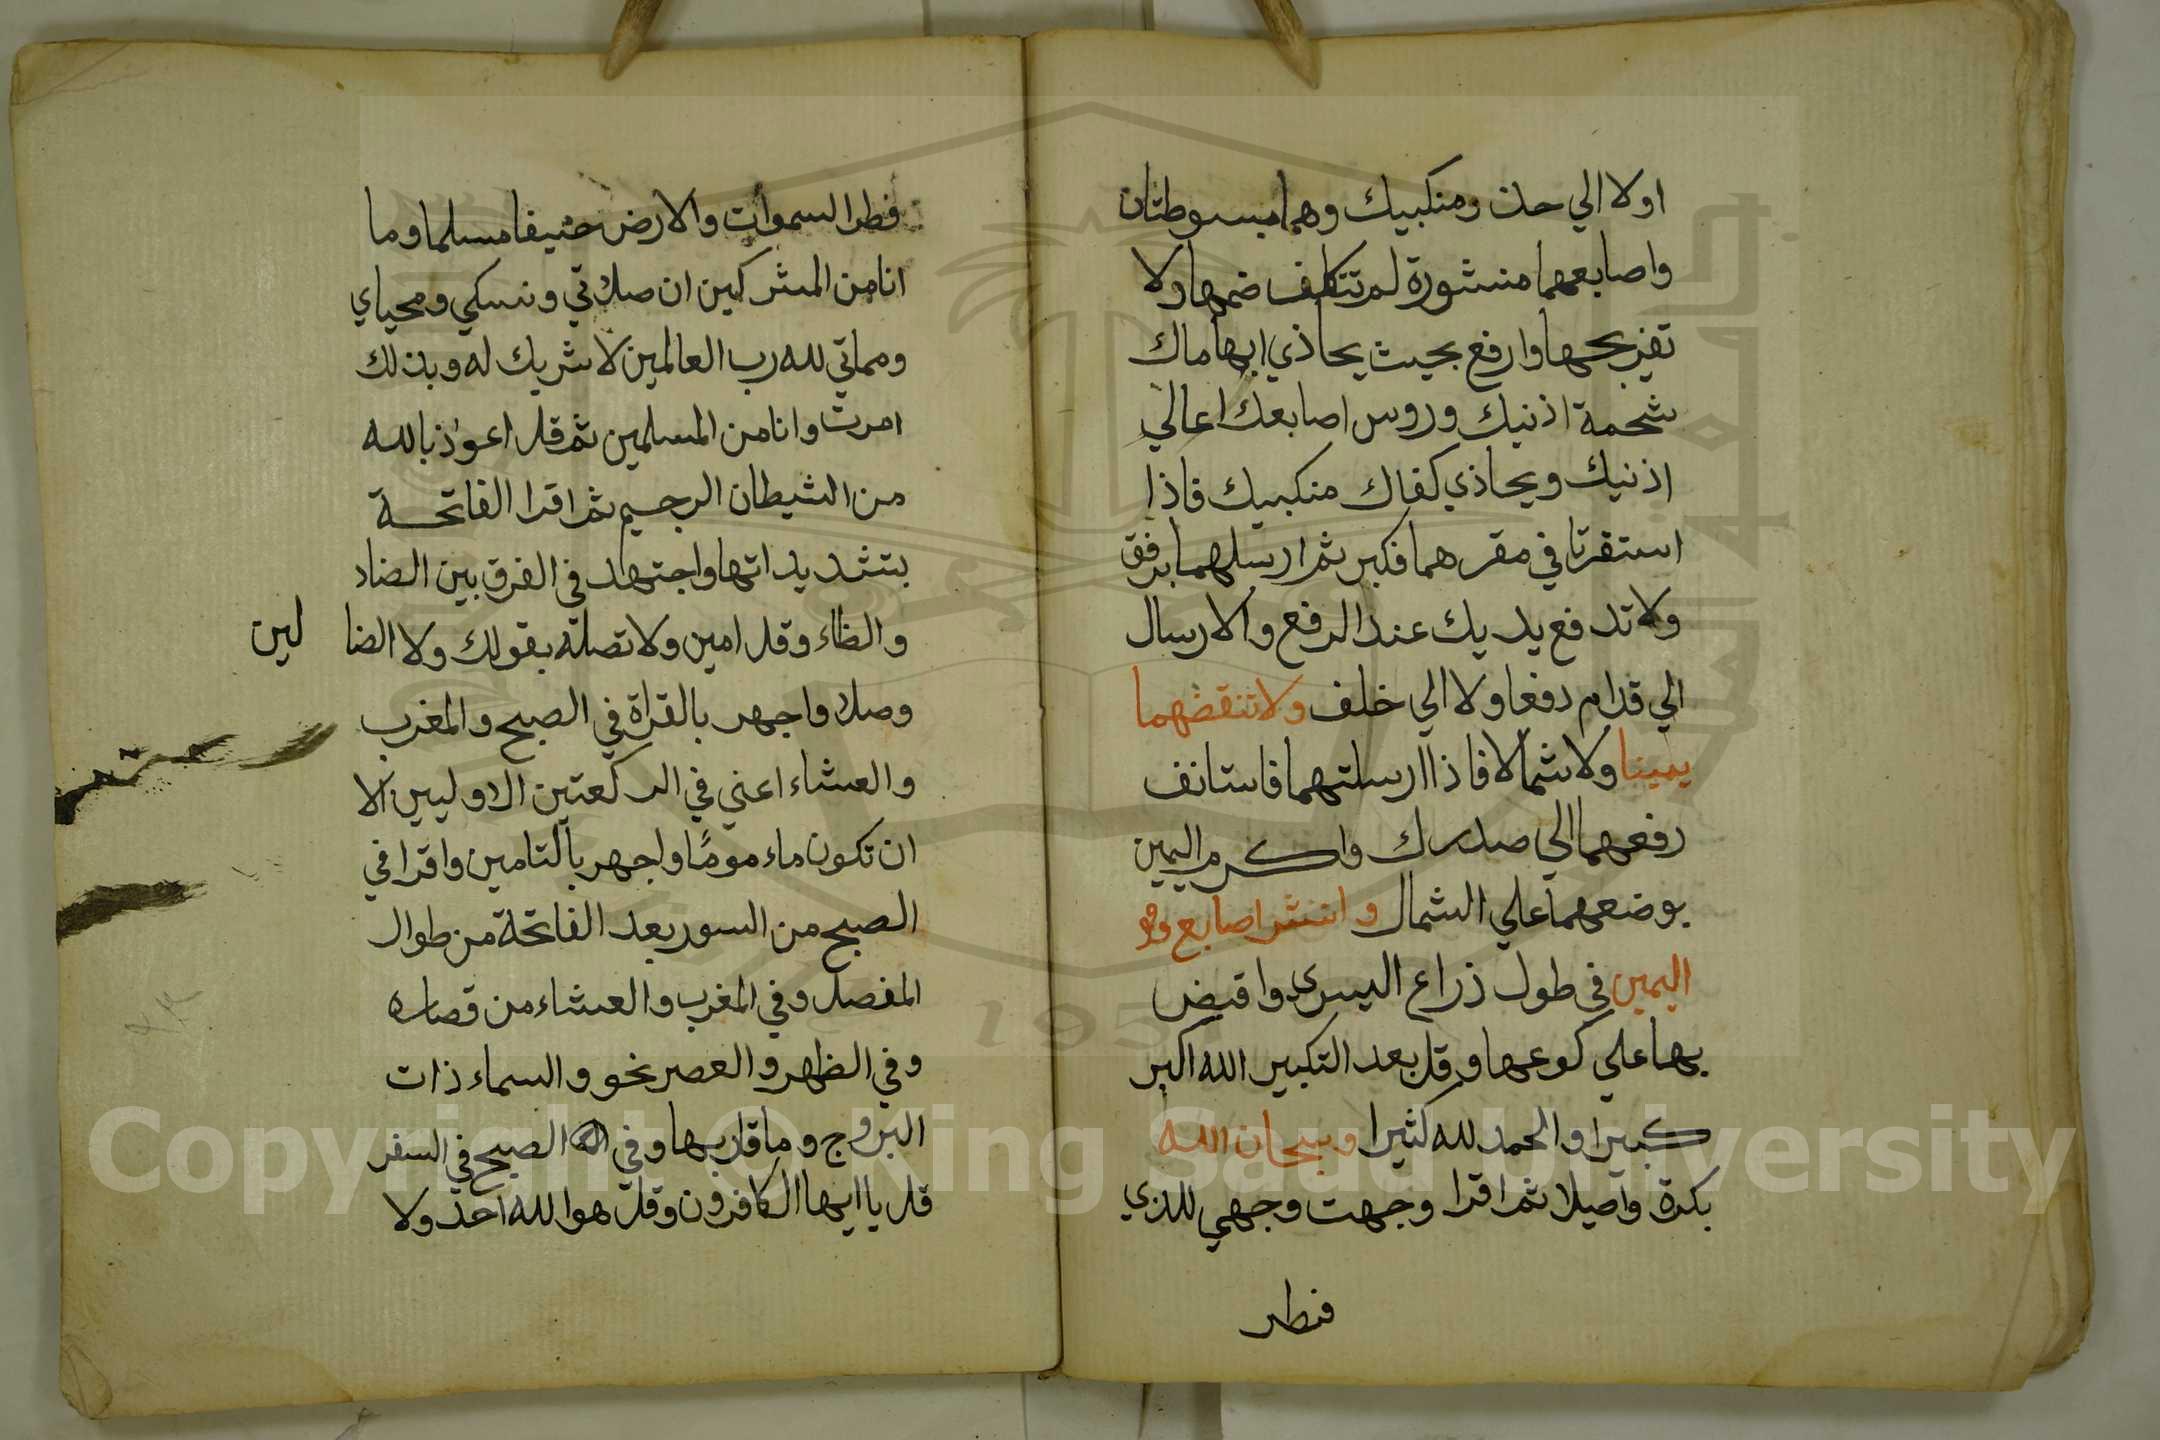 اولا الي حذ ومنكبيك وهما مبسوطتان
واصابعهما منشورة لم تتكلف ضمها ولا
تفريجها وارفع بحيث يحاذي ابهاماك
شحمة اذنيك وروس اصابعك اعالي
اذنيك ويحاذي كفاك منكبيك فاذا
استقرتا في مقرهما فكبر ثم ارسلهما برفق
ولا تدفع يديك عند الرفع والارسال
الي قدام دفعا ولا الي خلف ولا تنفضهما
يمينا ولا شمالا فاذا ارسلتهما فاستانف
رفعهما الي صدرك واكرم اليمين
بوضعهما علي الشمال وانشر اصابع
اليمين في طول ذراع اليسري واقبض
بها علي كوعها وقل بعد التكبير الله اكبر
كبيرا والحمد لله كثيرا وسبحان الله
بكرة واصيلا ثم اقرا وجهت وجهي للذي
فطر
فطر السموات والارض حنيفا مسلما وما
انا من المشركين ان صلاتي ونسكي ومحياي
ومماتي لله رب العالمين لا شريك له وبذلك
امرت وانا من المسلمين ثم قل اعوذ بالله
من الشيطان الرجيم ثم اقرا الفاتحة
بتشديداتها واجتهد في الفرق بين الضاد
والظاء وقل امين ولا تصله بقولك ولا الضا لين
وصل واجهر بالقراة في الصبح والمغرب
والعشاء اعني في الركعتين الاوليين الا
ان تكون ماء موما واجهر بالتامين واقرا في
الصبح من السور بعد الفاتحة من طوال
المفصل وفي المغرب والعشاء من قصاره
وفي الظهر والعصر نحو والسماء ذات
البروج وما قاربها وفي الصبح في السفر
قل يا ايها الكافرون وقل هو الله احد ولا
Copyright © King Saud University
1957